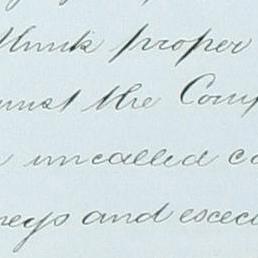 think proper
against the Comp
uncalled ca
neys and execu